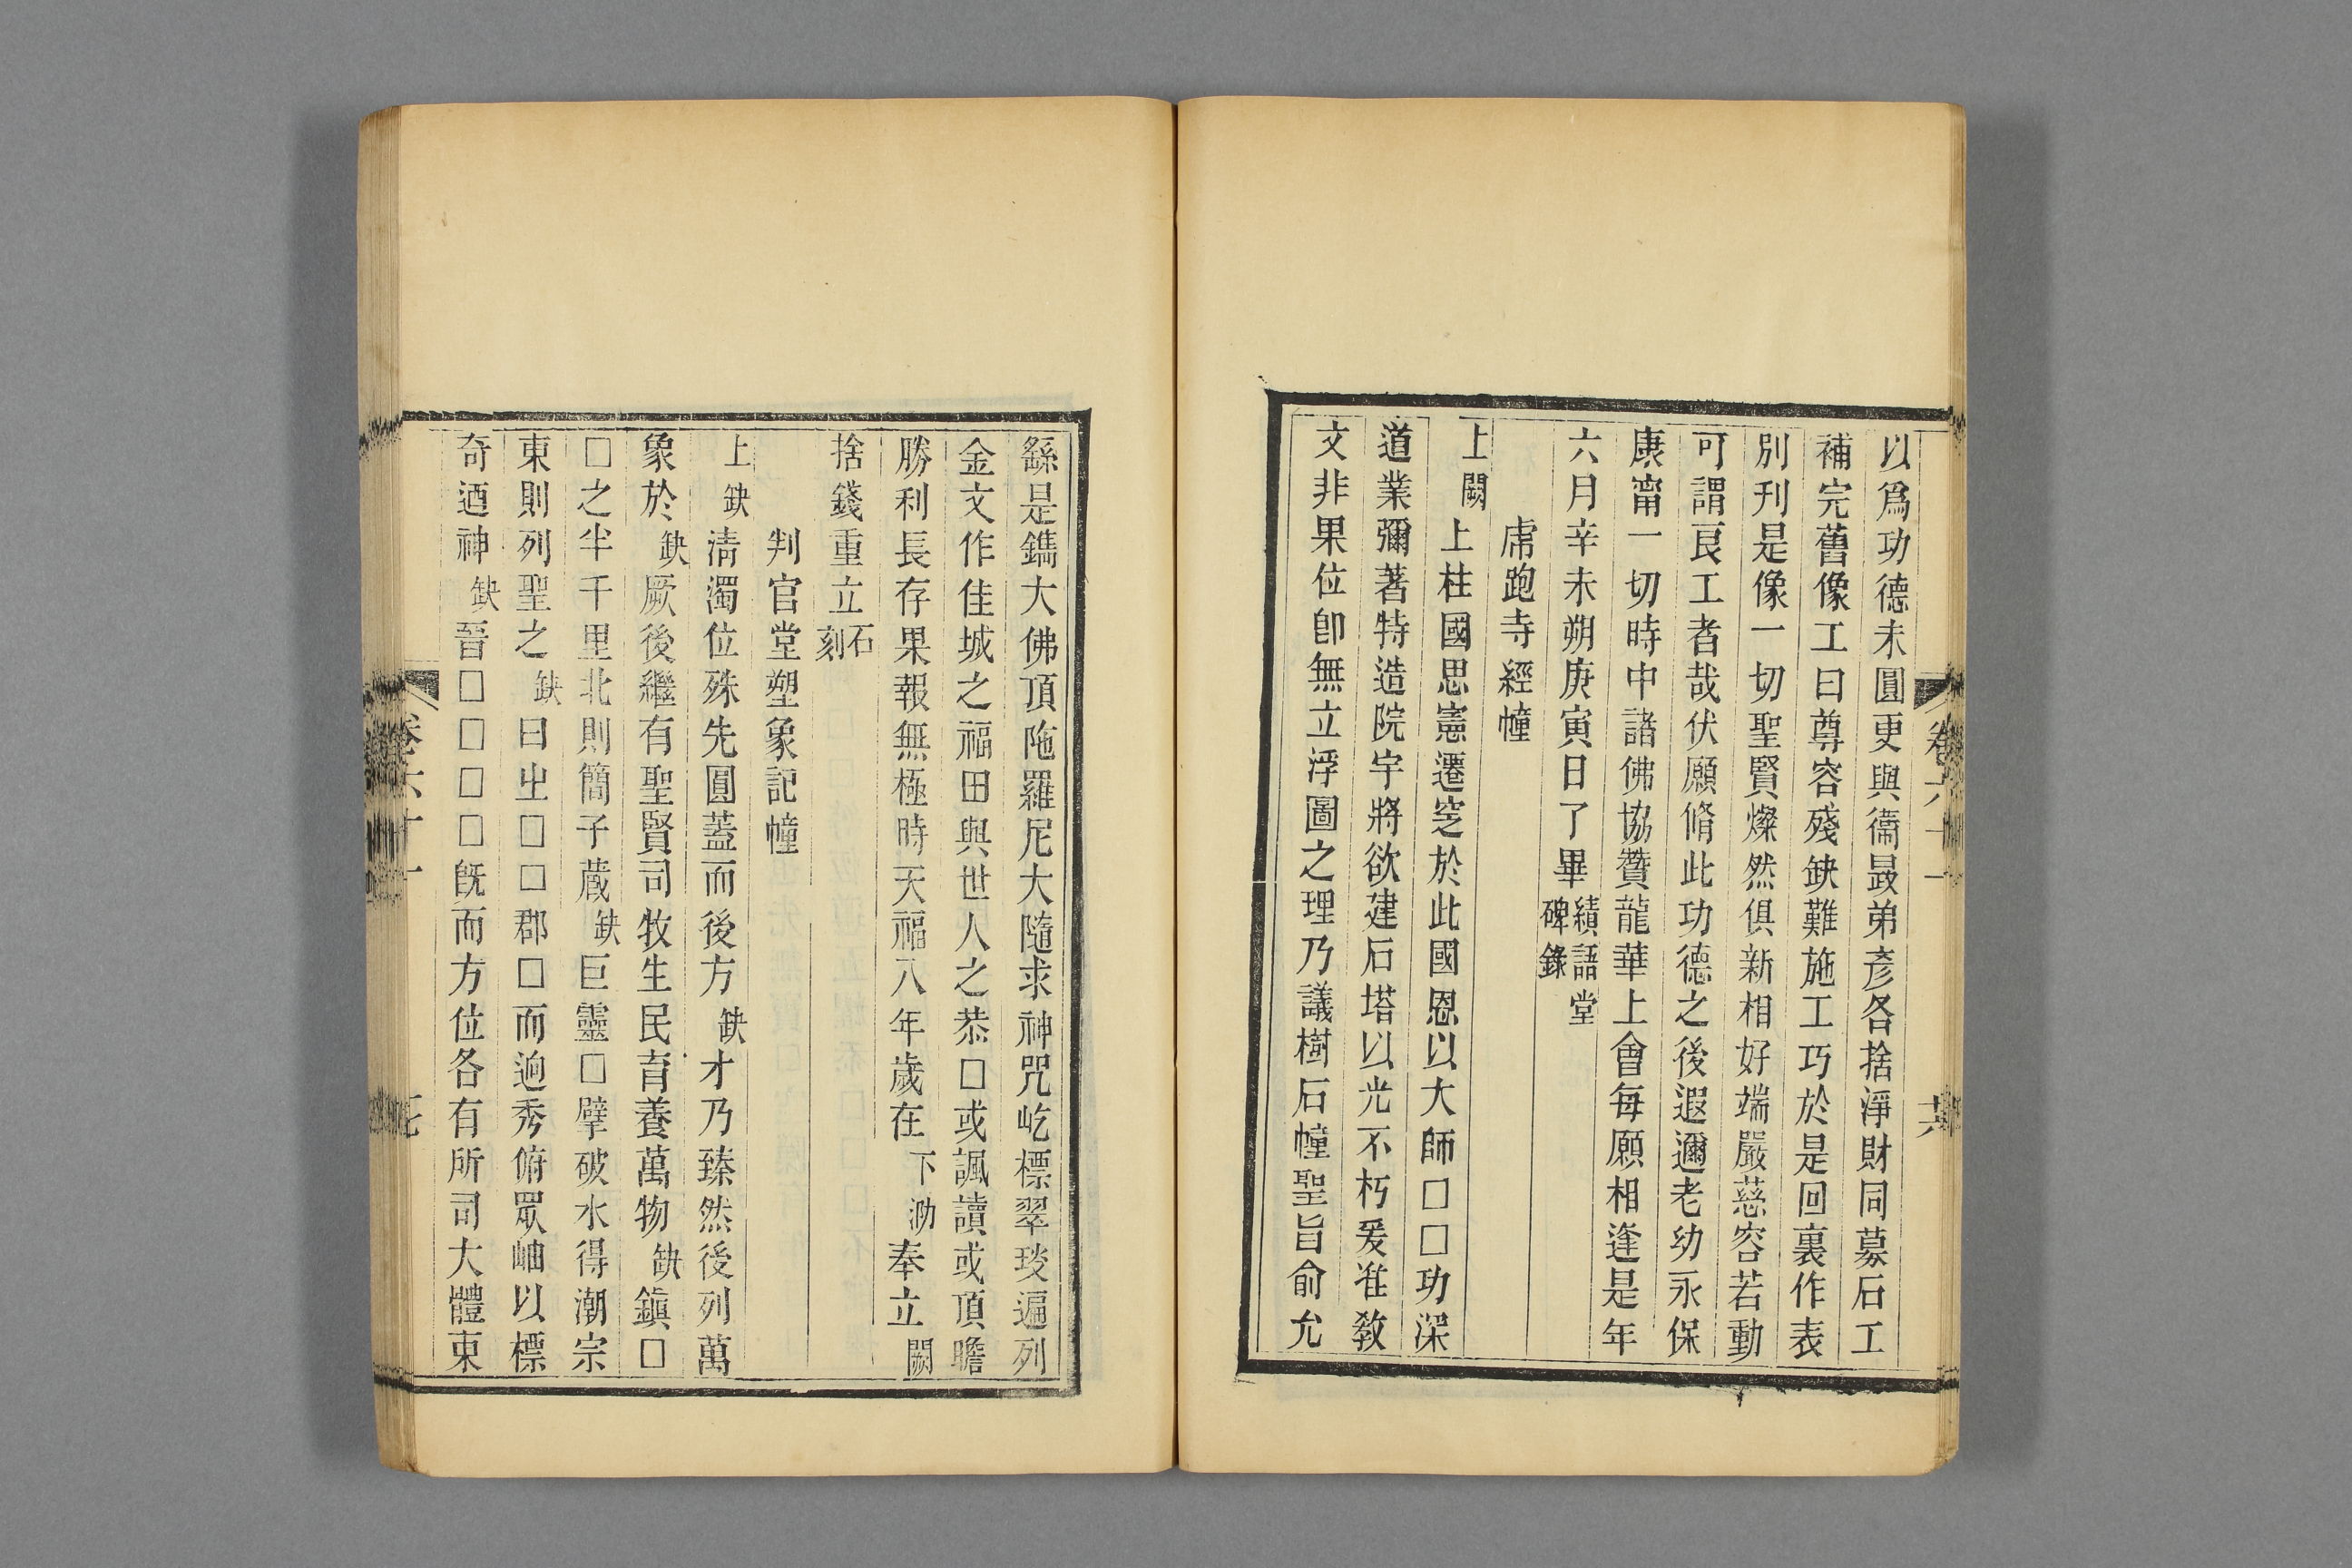 以爲功德未圓更與衞最弟彥各捨淨財同募石工
補完舊像工曰尊容殘缺難施工巧於是回裏作表
別刊是像一切聖賢燦然俱新相好端嚴慈容若動
可謂良工者哉伏願脩此功德之後遐邇老幼永保
康甯一切時中諸佛協贊龍華上會每願相逢是年
六月辛未朔庚寅日了畢績語堂
碑錄
虎跑寺經幢
上闕上柱國思憲遷窆於此國恩以大師□□功深
道業彌著特造院宇將欲建石塔以光不朽爰准敎
文非果位卽無立浮圖之理乃議樹石幢聖旨俞允
卷六十一
共
繇是鐫大佛頂陁羅尼大隨求神咒屹標翠琰遍列
金文作佳城之福田與世人之恭□或諷讀或頂瞻
勝利長存果報無極時天福八年歲在下泐奉立闕
捨錢重立石
刻
判官堂塑象記幢
上缺清濁位殊先圓蓋而後方缺才乃臻然後列萬
象於缺厥後繼有聖賢司牧生民育養萬物缺鎭□
□之半千里北則簡子藏缺巨靈□擘破水得潮宗
東則列聖之缺曰出□□郡□而逈秀俯眾岫以標
奇迺神缺晉□□□□旣而方位各有所司大體東
卷六十一